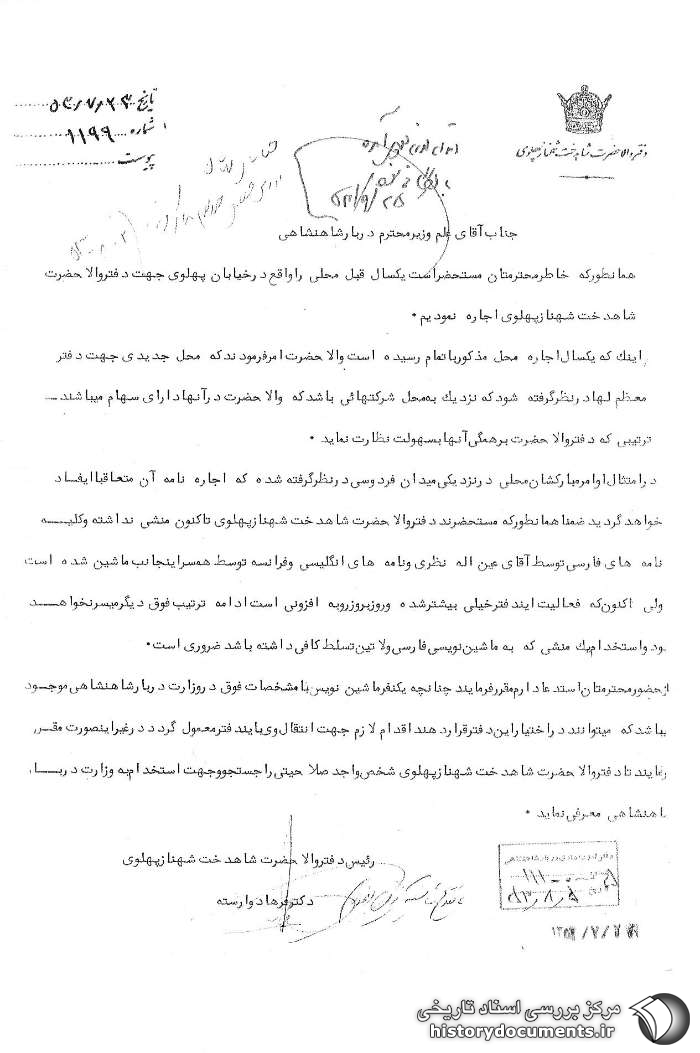 دفتر والاحضرت شاهدخت شهناز پهلوی
تاریخ ۵۳/۷/۲۳
شماره ۱۱۹۹
پیوست
جناب آقای علم وزیر محترم دربار شاهنشاهی
همانطور که خاطر محترمتان مستحضر است یکسال قبل محلی را واقع در خیابان پهلوی جهت دفتر والاحضرت
شاهدخت شهناز پهلوی اجاره نمودیم .
اینک که یکسال اجاره محل مذکور باتمام رسیده است والاحضرت امر فرمودند که محل جدیدی جهت دفتر
معظم لها در نظر گرفته شود که نزدیک به محل شرکتهائی باشد که والاحضرت در آنها دارای سهام میباشند
ترتیبی که دفتر والاحضرت بر همگی آنها بسهولت نظارت نماید .
در امتثال اوامر مبارکشان محلی در نزدیکی میدان فردوسی در نظر گرفته شده که اجاره نامه آن متعاقبا ایفاد
خواهد گردید ضمنا همانطور که مستحضرند دفتر والاحضرت شاهدخت شهناز پهلوی تاکنون منشی نداشته و کلیه
نامه های فارسی توسط آقای عین اله نظری و نامه های انگلیسی و فرانسه توسط همسر اینجانب ماشین شده است
ولی اکنون که فعالیت ایندفتر خیلی بیشتر شده و روز بروز رو به افزونی است ادامه ترتیب فوق دیگر میسر نخواهد
بود و استخدام یک منشی که به ماشین نویسی فارسی و لاتین تسلط کافی داشته باشد ضروری است .
از حضور محترمتان استدعا دارم مقرر فرمایند چنانچه یکنفر ماشین نویس با مشخصات فوق در وزارت دربار شاهنشاهی موجود
یباشد که میتوانند در اختیار این دفتر قرار دهند اقدام لازم جهت انتقال وی بایندفتر معمول گردد در غیر اینصورت مقرر
فرمایند تا دفتر والاحضرت شاهدخت شهناز پهلوی شخص واجد صلاحیتی را جستجو و جهت استخدام به وزارت دربار
شاهنشاهی معرفی نماید .
رئیس دفتر والاحضرت شاهدخت شهناز پهلوی
دکتر فرهاد وارسته
۵۳/۸/۵
مرکز بررسی اسناد تاریخی
historydocuments.ir